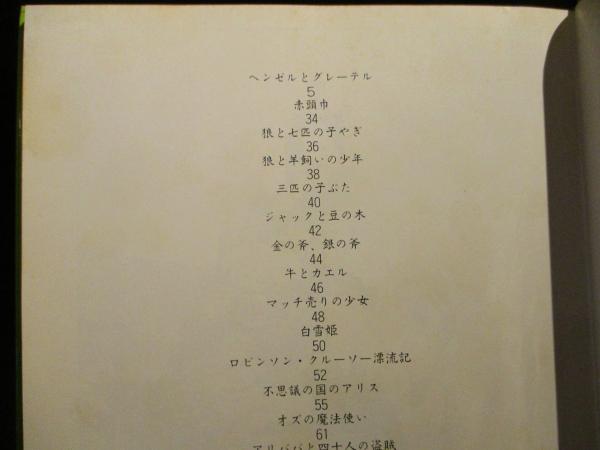 ヘンゼルとグレーテル
5
赤頭巾
34
狼と七匹の子やぎ
36
狼と羊飼いの少年
38
三匹の子ぶた
40
ジャックと豆の木
42
金の斧、銀の斧
44
牛とカエル
46
マッチ売りの少女
48
白雪姫
50
ロビンソン・クルーソー漂流記
52
不思議の国のアリス
55
オズの魔法使い
61
アリババと四十人の盗賊